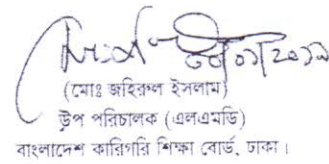 (মোঃ জহিরুল ইসলাম)
উপ পরিচালক (এলএমডি)
বাংলাদেশ কারিগরি শিক্ষা বোর্ড, ঢাকা।